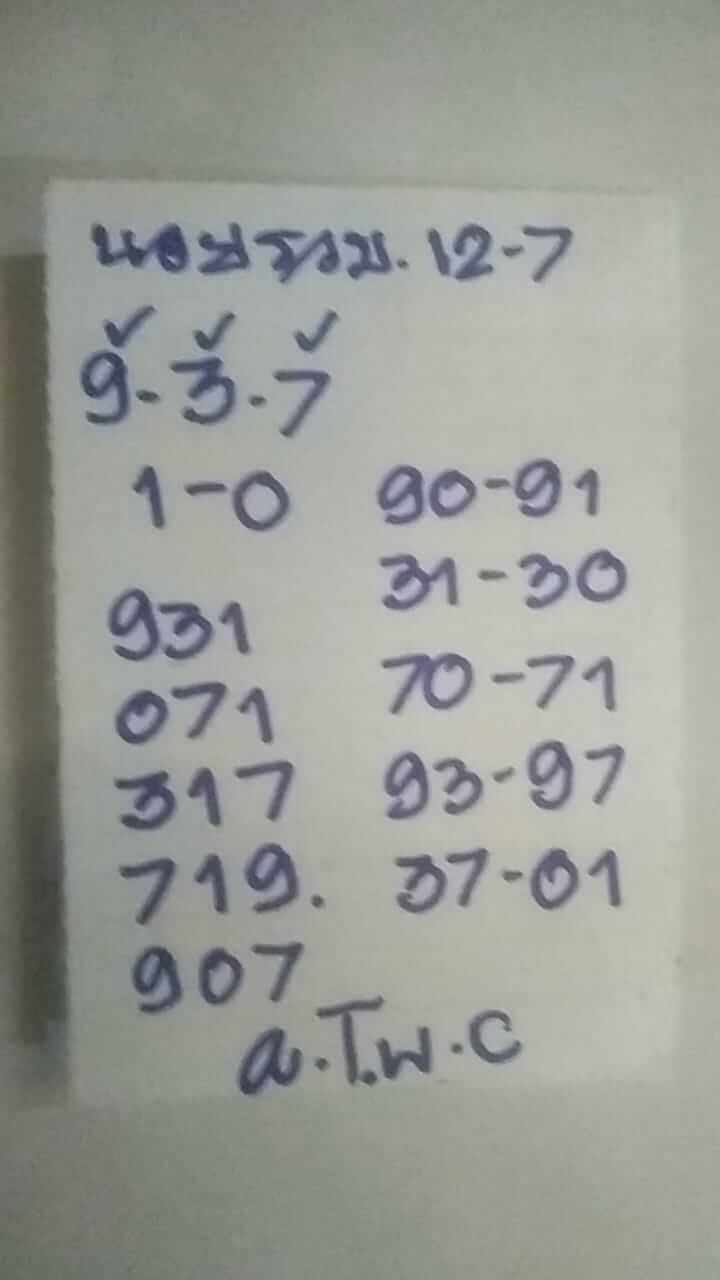 นอยรวม. 12-7
9-3-7
1-0
90-91
31-30
931
70-71
071
93-97
317
37-01
719.
907
a.T.W.C